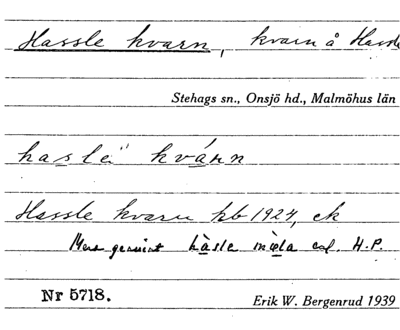 Hassle kvarn, kvarn å Hassle
Stehags sn., Onsjö hd., Malmöhus län
haslë kvárn
Hassle kvarn kb 1924, ek
Mera genuint hàsla mœla enl. H.P.
Nr 5718.
Erik W. Bergenrud 1939